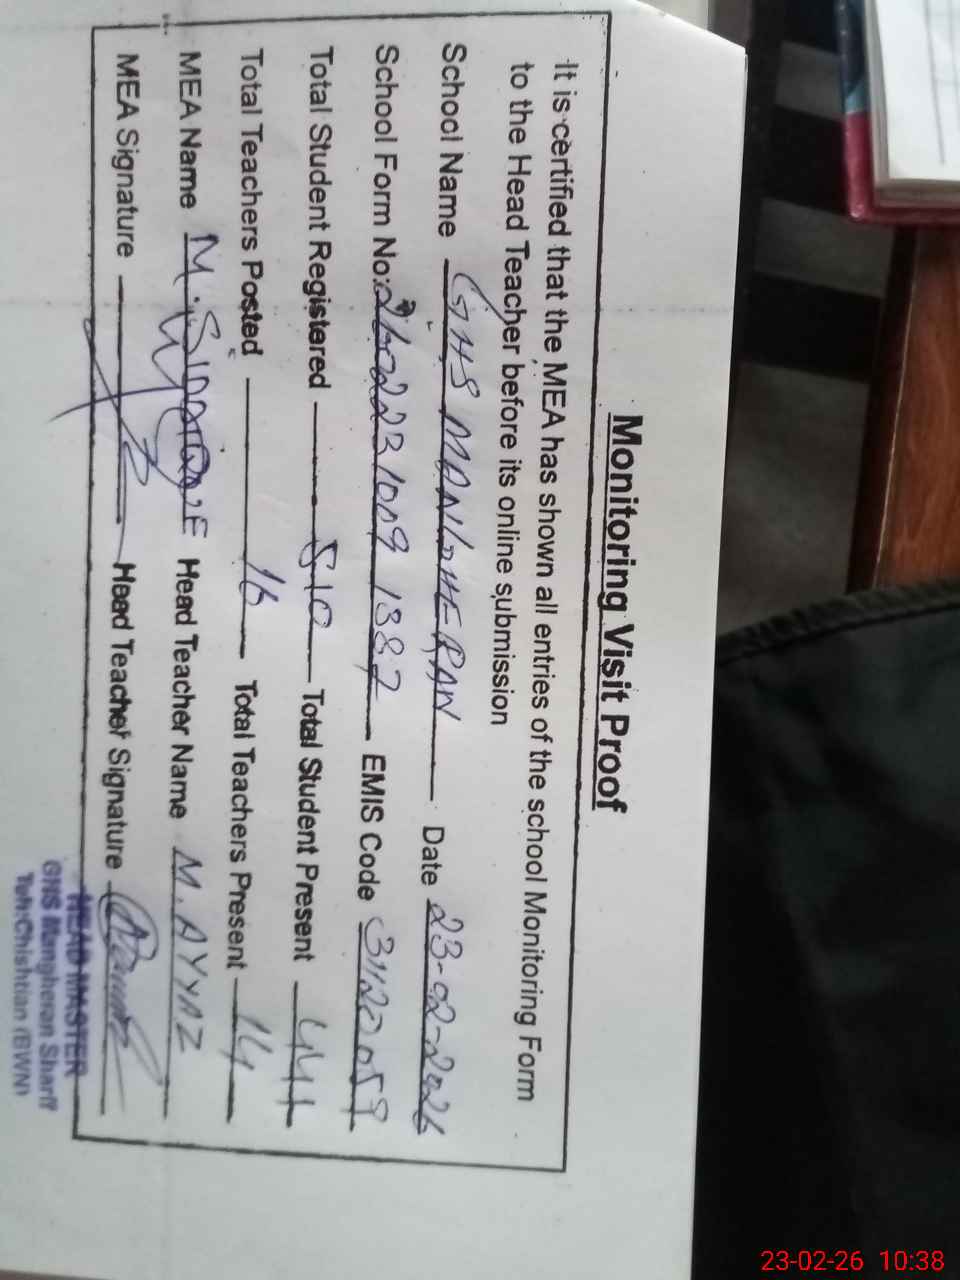 Monitoring Visit Proof
It is certified that the MEA has shown all entries of the school Monitoring Form
to the Head Teacher before its online submission
School Name GHS MANGHERAN Date 23-02-2026
School Form No: EMIS Code 31120059
Total Student Registered 510 Total Student Present 441
Total Teachers Posted 16 Total Teachers Present 14
MEA Name M. Head Teacher Name M. AYYAZ
MEA Signature Head Teacher Signature
HEAD MASTER
GHS Mangheran Sharif
Teh: Chishtian (BWN)
23-02-26 10:38